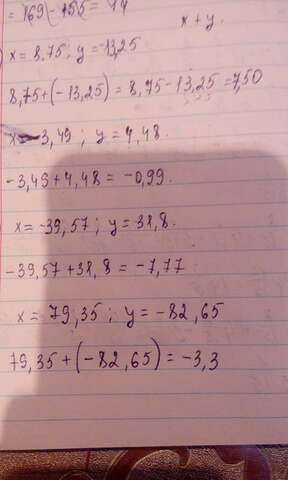 = 169 - 155 = 14
x + y.
x = 8,75; y = -13,25
8,75 + (-13,25) = 8,75 - 13,25 = 7,50
x -3,49; y = 4,48.
-3,49 + 4,48 = -0,99.
x = -39,57; y = 31,8.
-39,57 + 31,8 = -7,77
x = 79,35; y = -82,65
79,35 + (-82,65) = -3,3